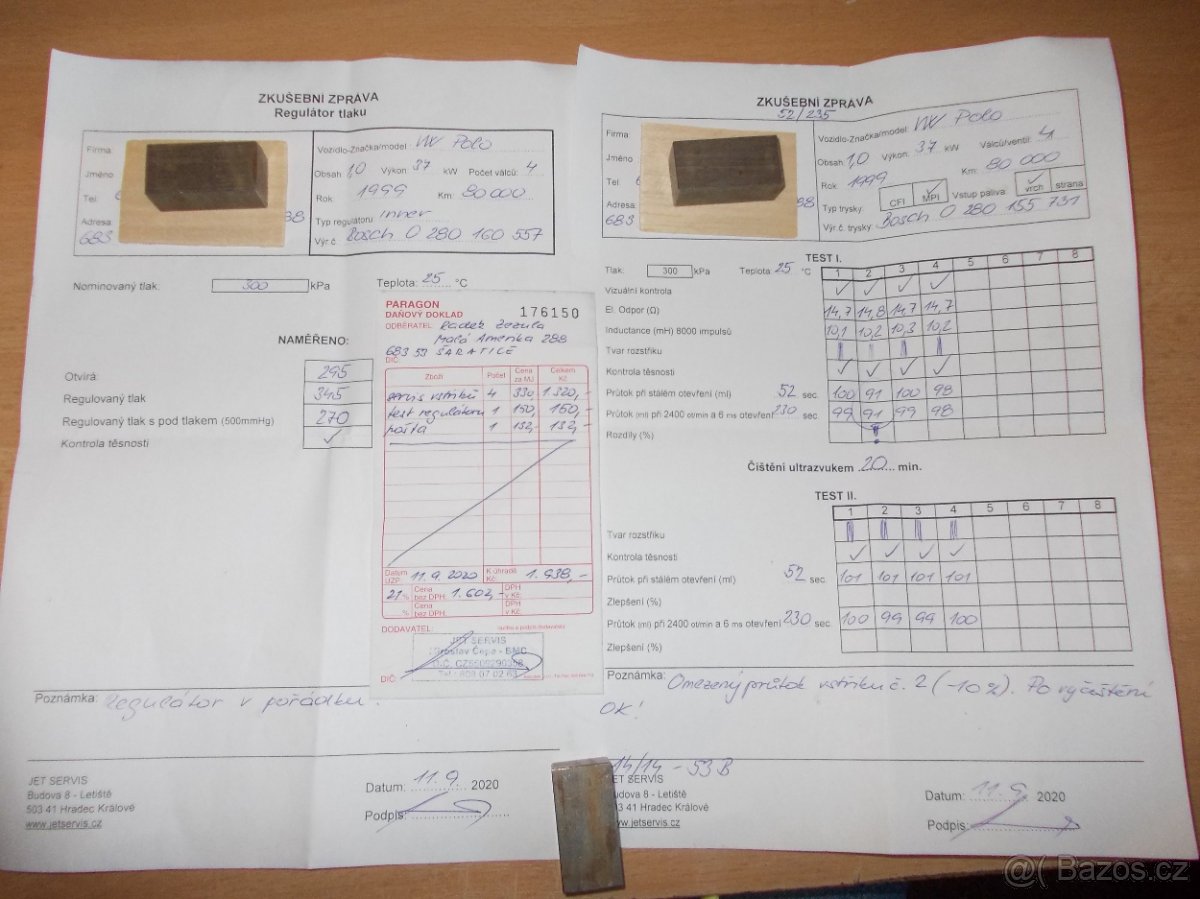 ZKUŠEBNÍ ZPRÁVA
Regulátor tlaku
Firma:
Jméno
Tel:
Adresa:
683
98
Vozidlo-Značka/model: VW Polo
Obsah 1,0 Výkon: 37 kW Počet válců: 4
Rok 1999 Km: 80 000
Typ regulátoru inner
Výr.č. Bosch 0 280 160 557
Nominovaný tlak: 300 kPa
Teplota: 25 °C
NAMĚŘENO:
Otvírá: 295
Regulovaný tlak 345
Regulovaný tlak s pod tlakem (500mmHg) 270
Kontrola těsnosti ✓
Poznámka: Regulátor v pořádku.
JET SERVIS
Budova 8 - Letiště
503 41 Hradec Králové
www.jetservis.cz
Datum: 11.9. 2020
Podpis:
PARAGON
DAŇOVÝ DOKLAD 176150
ODBĚRATEL: Radek Zezula
Malá Amerika 288
683 53 ŠARATICE
DIČ:
Zboží Počet Cena za MJ Celkem Kč
servis vstřiků 4 330 1.320,-
test regulátoru 1 150,- 150,-
pošta 1 132,- 132,-
Datum UZP. 11.9.2020 K úhradě Kč. 1.938,-
21 % Cena bez DPH 1.602,- DPH v Kč:
% Cena bez DPH DPH v Kč:
DODAVATEL:
JET SERVIS
DIČ:
ZKUŠEBNÍ ZPRÁVA
52/235
Firma
Jméno
Tel:
Adresa:
683
98
Vozidlo-Značka/model: VW Polo
Obsah 1,0 Výkon: 37 kW Válců/ventilů 4
Rok 1999 Km: 80 000
Typ trysky: CFI MPI ✓ Vstup paliva: vrch ✓ strana
Výr.č. trysky: Bosch 0 280 155 731
Tlak: 300 kPa Teplota: 25 °C
TEST I.
1 2 3 4 5 6 7 8
Vizuální kontrola ✓ ✓ ✓ ✓
El. Odpor (Ω) 14,7 14,8 14,7 14,7
Inductance (mH) 8000 impulsů 10,1 10,2 10,3 10,2
Tvar rozstřiku
Kontrola těsnosti ✓ ✓ ✓ ✓
Průtok při stálém otevření (ml) 52 sec. 100 91 100 98
Průtok (ml) při 2400 ot/min a 6 ms otevření 230 sec. 99 91 99 98
Rozdíly (%) !
Čištění ultrazvukem 20 min.
TEST II.
1 2 3 4 5 6 7 8
Tvar rozstřiku
Kontrola těsnosti ✓ ✓ ✓ ✓
Průtok při stálém otevření (ml) 52 sec. 101 101 101 101
Zlepšení (%)
Průtok (ml) při 2400 ot/min a 6 ms otevření 230 sec. 100 99 99 100
Zlepšení (%)
Poznámka: Omezený průtok vstřiku č. 2 (-10%). Po vyčištění
OK!
14/14 - 53 B
JET SERVIS
Budova 8 - Letiště
503 41 Hradec Králové
www.jetservis.cz
Datum: 11.9. 2020
Podpis:
Bazoš.cz